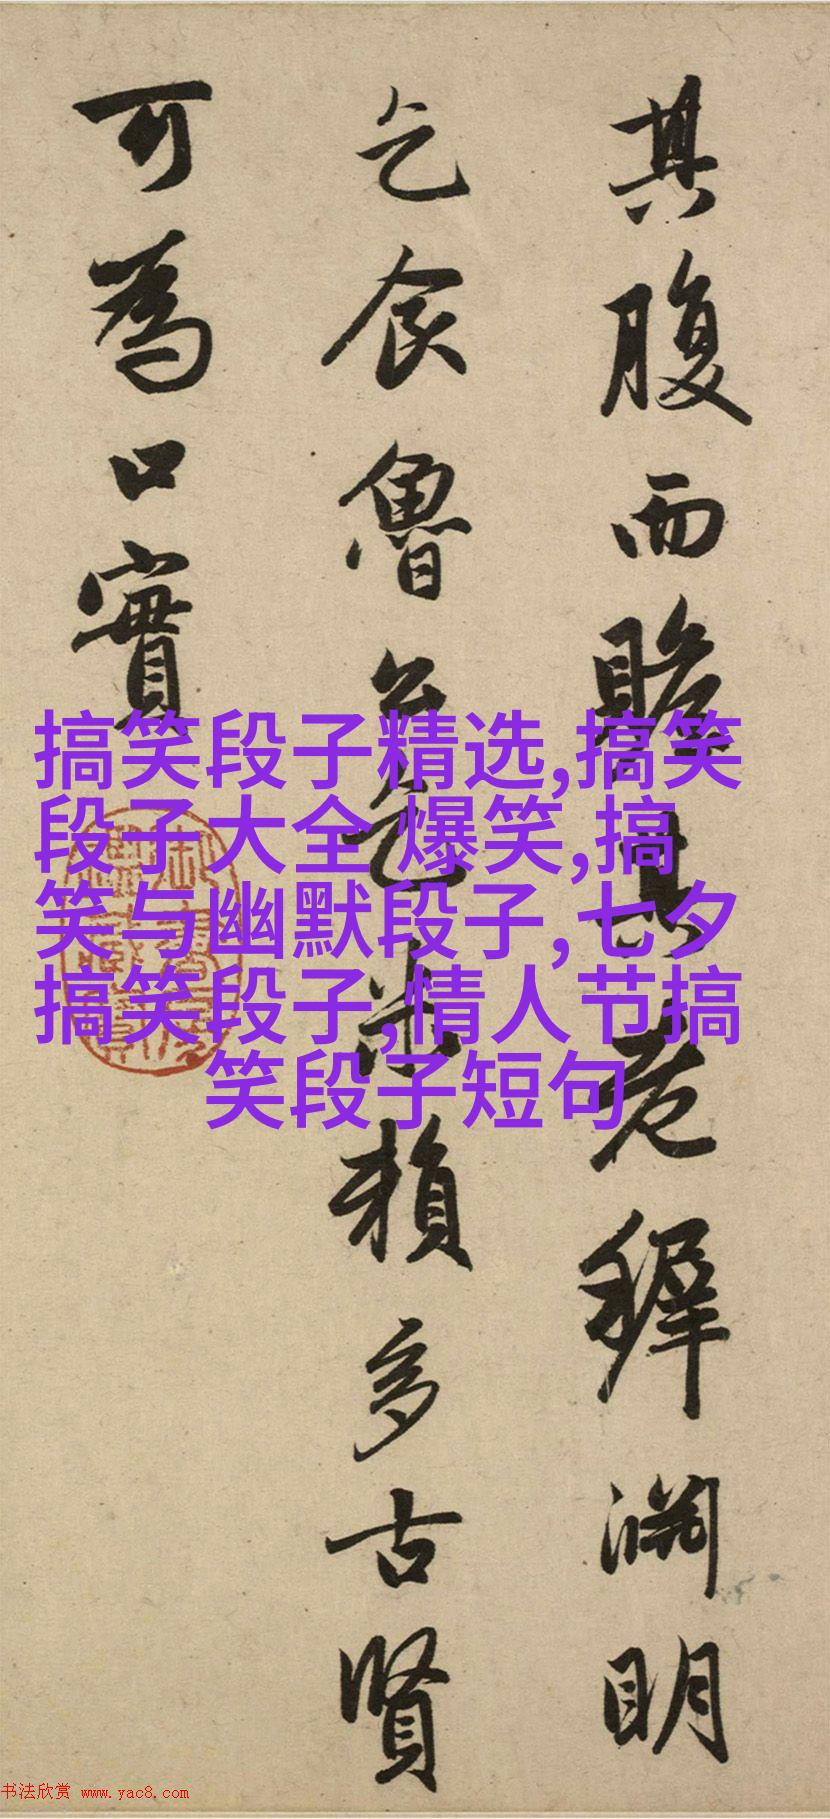 其腹而瞻其老穉渊明
乞食魯公乞米赖多古賢
可為口實
搞笑段子精选,搞笑
段子大全 爆笑,搞
笑与幽默段子,七夕
搞笑段子,情人节搞
笑段子短句
书法欣赏 www.yac8.com